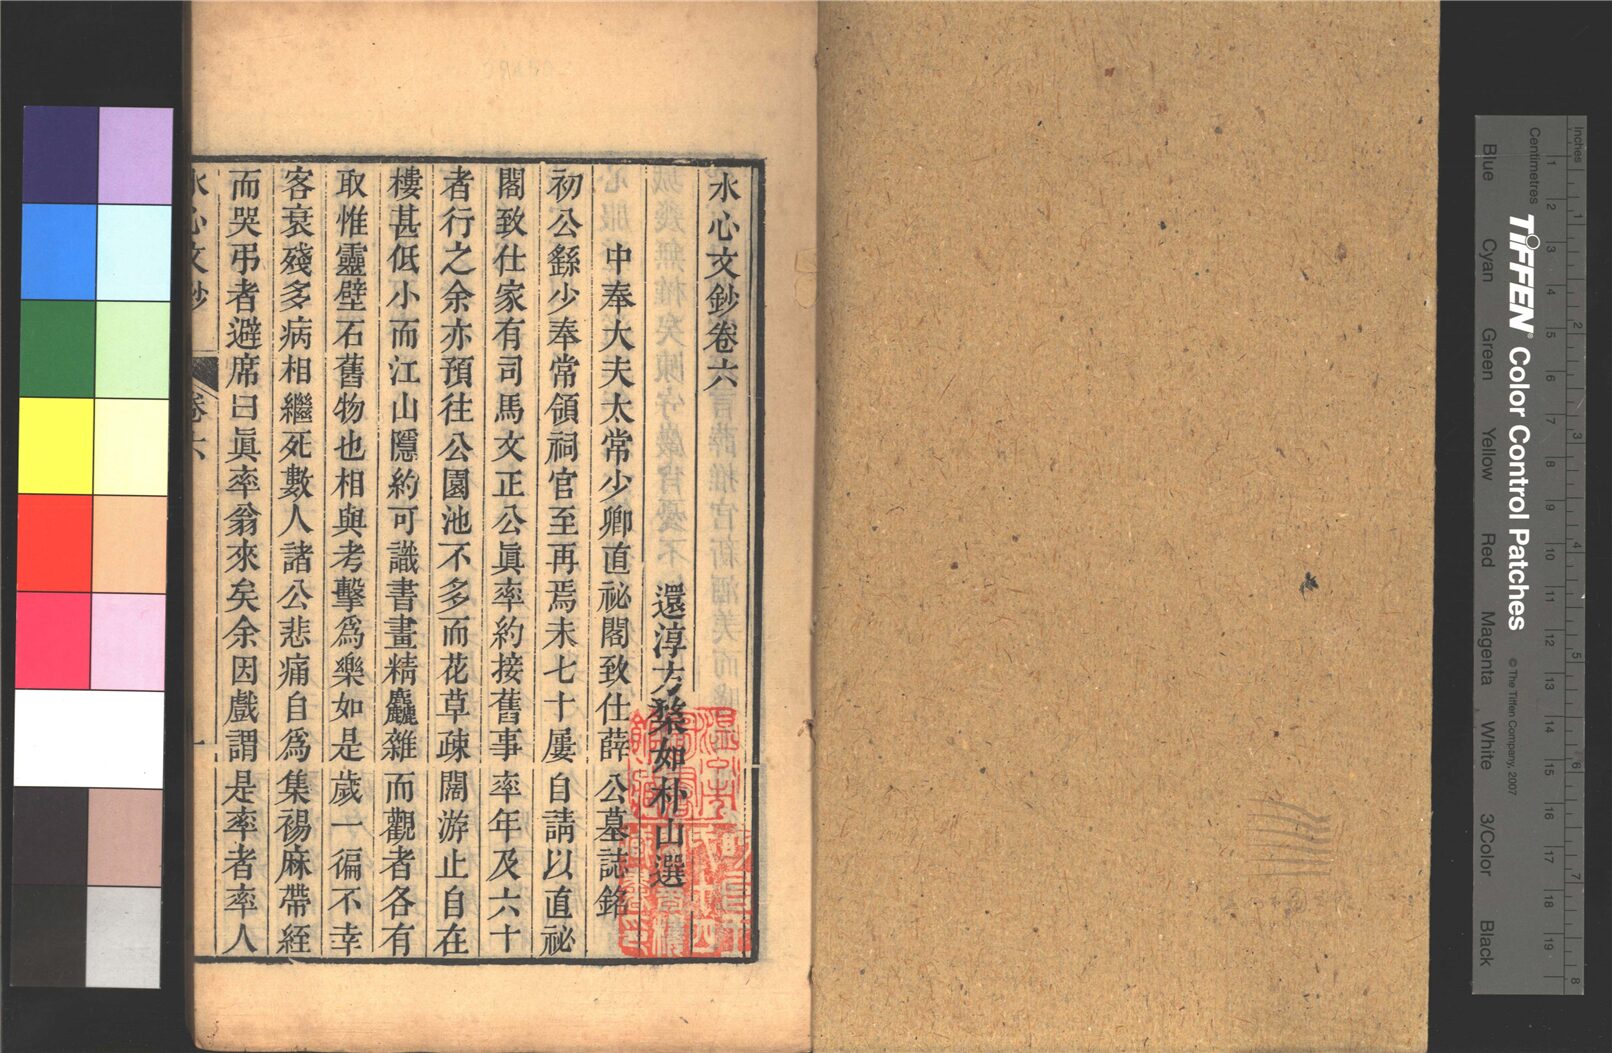 水心文鈔卷六
還淳方楘如朴山選
中奉大夫太常少卿直祕閣致仕薛公墓誌銘
初公繇少奉常領祠官至再焉未七十屢自請以直祕
閣致仕家有司馬文正公眞率約接舊事率年及六十
者行之余亦預往公園池不多而花草疎闊游止自在
樓甚低小而江山隱約可識書畫精麤雜而觀者各有
取惟靈壁石舊物也相與考擊爲樂如是歲一徧不幸
客衰殘多病相繼死數人諸公悲痛自爲集裼麻帶絰
而哭弔者避席曰眞率翁來矣余因戲謂是率者率人
水心文鈔
卷六
一
TIFFEN® Color Control Patches
© The Tiffen Company, 2007
Inches
1 2 3 4 5 6 7 8
Centimetres
1 2 3 4 5 6 7 8 9 10 11 12 13 14 15 16 17 18 19
Blue
Cyan
Green
Yellow
Red
Magenta
White
3/Color
Black